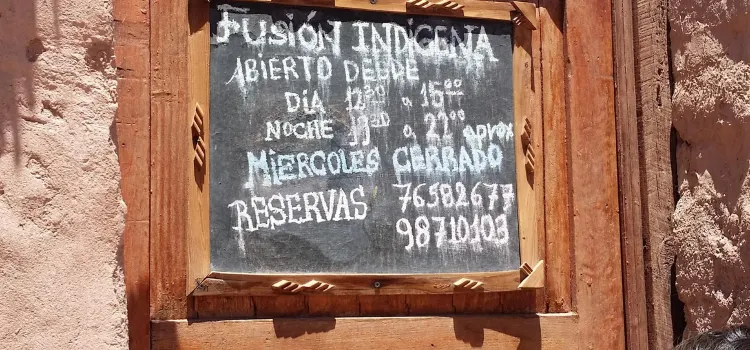 FUSIÓN INDIGENA
ABIERTO DESDE
DIA 12³⁰ a 15⁰⁰
NOCHE 19³⁰ a 22⁰⁰ aprox
MIERCOLES CERRADO
RESERVAS 76582677
98710103